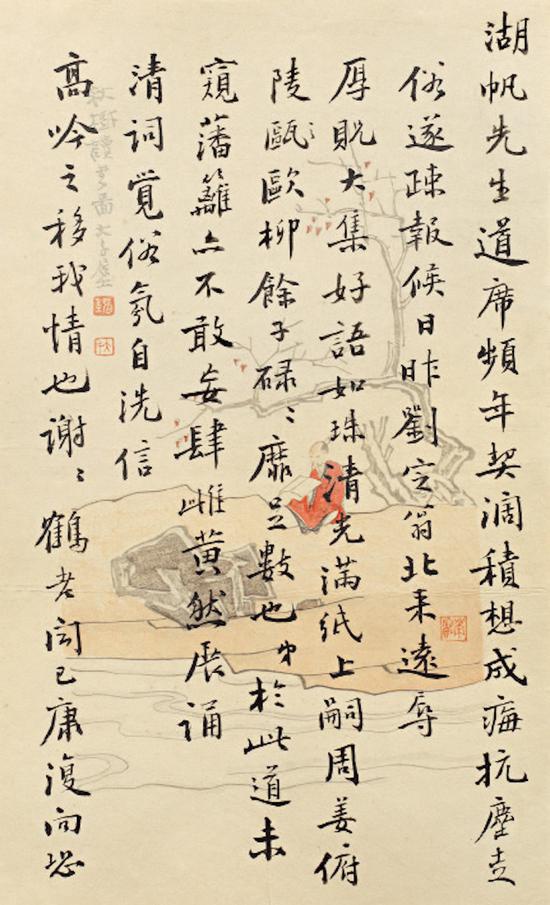 湖帆先生道席頻年契闊積想成痗抗塵走
俗遂疎報候日昨劉定翁北來遠辱
厚貺大集好語如珠清光滿紙上嗣周姜俯
陵甌歐柳餘子碌〻靡足數也弟於此道未
窺藩籬亦不敢妄肆雌黃然展誦
清詞覺俗氛自洗信
高吟之移我情也謝〻鶴老聞已康復向恐